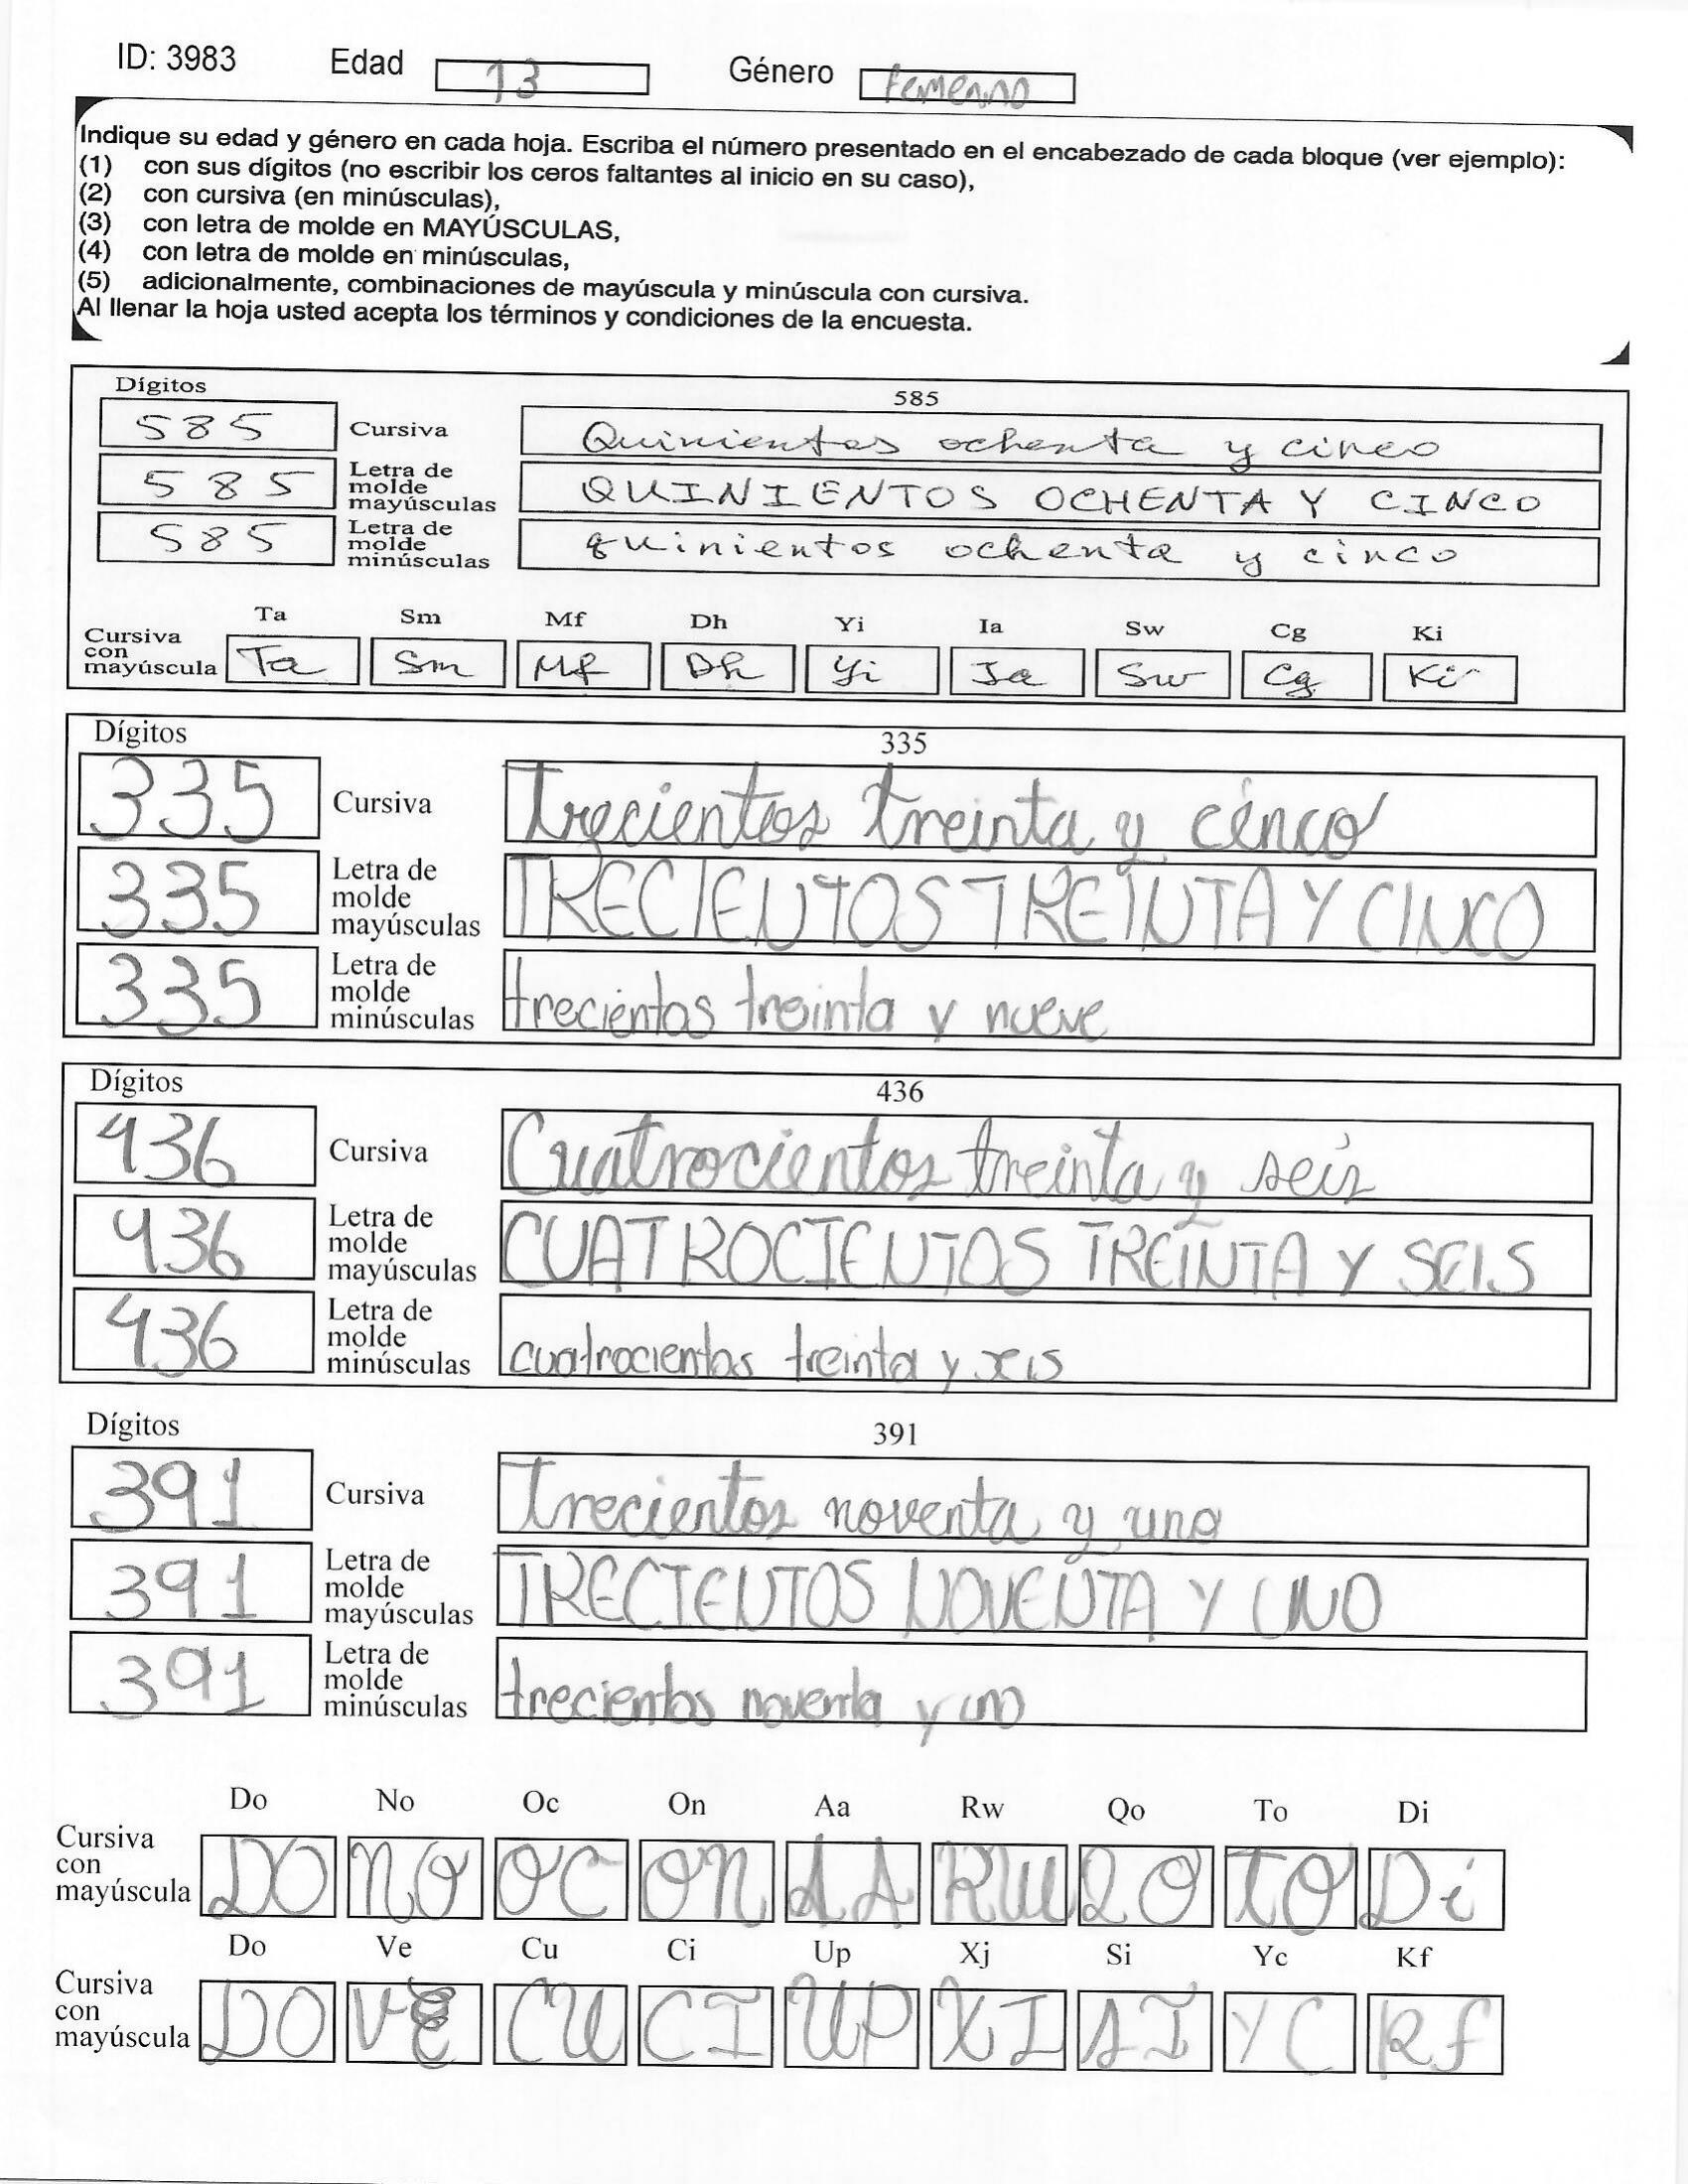 ID: 3983 Edad 13 Género femenino
Indique su edad y género en cada hoja. Escriba el número presentado en el encabezado de cada bloque (ver ejemplo):
(1) con sus dígitos (no escribir los ceros faltantes al inicio en su caso),
(2) con cursiva (en minúsculas),
(3) con letra de molde en MAYÚSCULAS,
(4) con letra de molde en minúsculas,
(5) adicionalmente, combinaciones de mayúscula y minúscula con cursiva.
Al llenar la hoja usted acepta los términos y condiciones de la encuesta.
Dígitos 585
585 Cursiva Quinientos ochenta y cinco
585 Letra de molde mayúsculas QUINIENTOS OCHENTA Y CINCO
585 Letra de molde minúsculas quinientos ochenta y cinco
Ta Sm Mf Dh Yi Ia Sw Cg Ki
Cursiva con mayúscula Ta Sm Mf Dh Yi Ia Sw Cg Ki
Dígitos 335
335 Cursiva Trecientos treinta y cinco
335 Letra de molde mayúsculas TRECIENTOS TREINTA Y CINCO
335 Letra de molde minúsculas trecientos treinta y nueve
Dígitos 436
436 Cursiva Cuatrocientos treinta y seis
436 Letra de molde mayúsculas CUATROCIENTOS TREINTA Y SEIS
436 Letra de molde minúsculas cuatrocientos treinta y seis
Dígitos 391
391 Cursiva Trecientos noventa y uno
391 Letra de molde mayúsculas TRECIENTOS NOVENTA Y UNO
391 Letra de molde minúsculas trecientos noventa y uno
Do No Oc On Aa Rw Qo To Di
Cursiva con mayúscula DO NO OC ON AA RW QO TO Di
Do Ve Cu Ci Up Xj Si Yc Kf
Cursiva con mayúscula DO VE CU CI UP XI SI YC Kf